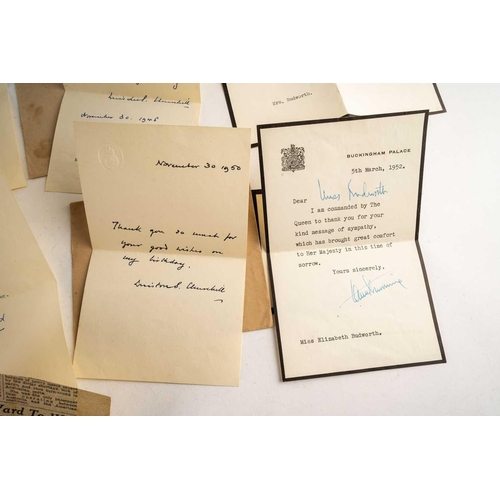 Winston S. Churchill
November 30. 1946
Mrs. Budworth.
November 30 1950
Thank you so much for
your good wishes on
my birthday.
Winston S. Churchill
BUCKINGHAM PALACE
5th March, 1952.
Dear Miss Budworth
I am commanded by The
Queen to thank you for your
kind message of sympathy,
which has brought great comfort
to Her Majesty in this time of
sorrow.
Yours sincerely,
Miss Elizabeth Budworth.
ard To